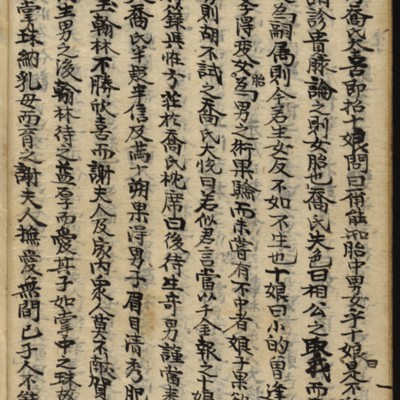 喬氏大喜即招十娘問曰爾能知胎中男女乎十娘曰不
請診貴脉論之則女胎也喬氏失色曰相公之取我而
為嗣属則今若生女反不如不生也十娘曰小的曾逢
得女胎為男之術果驗而未嘗有不中者娘子果欲
則胡不試之喬氏大悅曰若似君言當以千金報之十娘
符錄與怪方莊於喬氏枕席曰後待生奇男謹當来
喬氏半疑半信及満十朔果得男子眉目清秀肥
玉翰林不勝欣喜而謝夫人及家内衆人莫不献賀
生男之後翰林待之益厚而愛其子如掌中之珠故
掌珠納乳母而育之謝夫人撫愛無間已子人不能